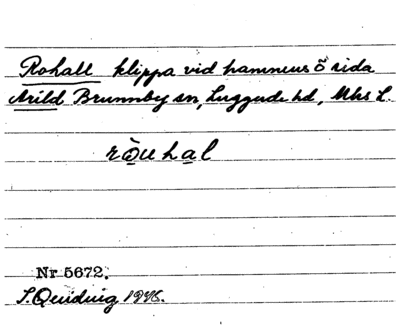 Rohall klippa vid hamnens ö sida
Arild Brunnby sn, Luggude hd, Mhs L.
ròu hal
Nr 5672.
S. Quiding 1946.